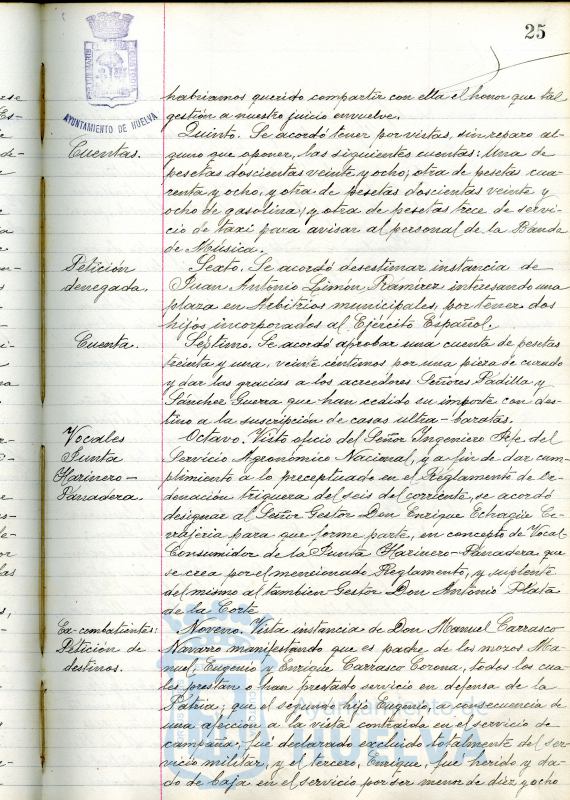 25
AYUNTAMIENTO DE HUELVA
habríamos querido compartir con ella el honor que tal
gestión a nuestro juicio envuelve.
Cuentas.
Quinto. Se acordó tener por vistas, sin reparo al-
guno que oponer, las siguientes cuentas: Una de
pesetas doscientas veinte y ocho; otra de pesetas cua-
renta y ocho, y otra de pesetas doscientas veinte y
ocho de gasolina; y otra de pesetas trece de servi-
cio de taxi para avisar al personal de la Banda
de Música.
Petición
denegada.
Sexto. Se acordó desestimar instancia de
Juan Antonio Limón Ramírez interesando una
plaza en Arbitrios municipales, por tener dos
hijos incorporados al Ejército Español.
Cuenta.
Séptimo. Se acordó aprobar una cuenta de pesetas
treinta y una, veinte céntimos por una pieza de curado
y dar las gracias a los acreedores Señores Padilla y
Sánchez Guerra que han cedido su importe con des-
tino a la suscripción de casas ultra-baratas.
Vocales
Junta
Harinero-
Panadera.
Octavo. Visto oficio del Señor Ingeniero Jefe del
Servicio Agronómico Nacional, y a fin de dar cum-
plimiento a lo preceptuado en el Reglamento de Or-
denación triguera del seis del corriente, se acordó
designar al Señor Gestor Don Enrique Echagüe Ce-
rrajería para que forme parte, en concepto de Vocal-
Consumidor de la Junta Harinero-Panadera que
se crea por el mencionado Reglamento, y suplente
del mismo al también Gestor Don Antonio Plata
de la Corte
Ex-combatientes:
Petición de
destinos.
Noveno. Vista instancia de Don Manuel Carrasco
Navarro manifestando que es padre de los mozos Ma-
nuel, Eugenio y Enrique Carrasco Corona, todos los cua-
les prestan o han prestado servicio en defensa de la
Patria; que el segundo hijo Eugenio a consecuencia de
una afección a la vista contraída en el servicio de
campaña, fué declarado excluido totalmente del ser-
vicio militar, y el tercero, Enrique, fué herido y da-
do de baja en el servicio por ser menor de diez y ocho
Ayuntamiento de
HUELVA